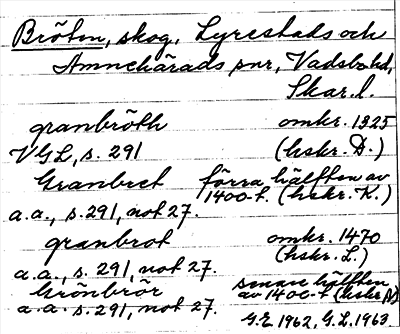 Bröten, skog, Lyrestads och
Amnehärads snr, Vadsbo hd,
Skar. l.
granbröth omkr. 1325
VGL, s. 291 (hskr. D.)
Granbret förra hälften av
a.a., s. 291, not 27. 1400-t. (hskr. K.)
granbrot omkr. 1470
a.a., s. 291, not 27. (hskr. L.)
Grönbrör senare hälften
a.a. s. 291, not 27. av 1400-t (hskr
G.E 1962, G.L. 1963.